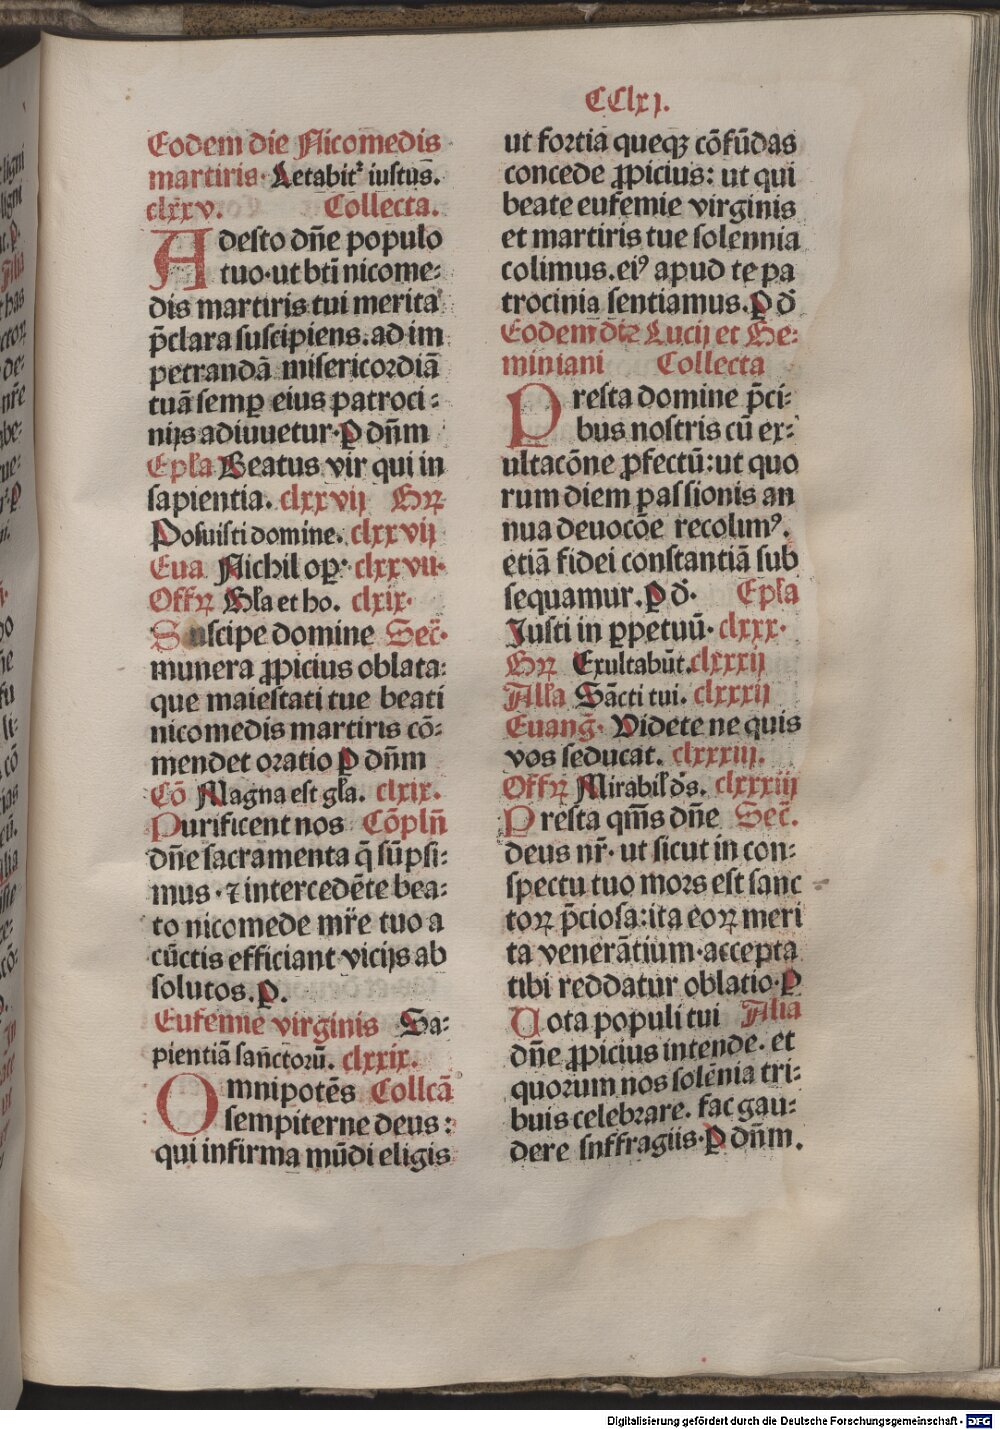 CClxj.
Eodem die Nicomedis
martiris. Letabitᷣ iustus.
clxxv. Collecta.
Adesto dn̄e populo
tuo·ut bti̅ nicome:
dis martiris tui merita
p̄clara suscipiens.ad im
petrandā misericordiā
tuā semꝑ eius patroci:
nijs adiuuetur·P dn̄m
Epl̄a Beatus vir qui in
sapientia. clxxvij Gꝝ
Posuisti domine. clxxvij
Eua Nichil oꝑ· clxxvii·
Offꝝ Gl̄a et ho. clxix·
Suscipe domine Sec̄·
munera ꝓpicius oblata:
que maiestati tue beati
nicomedis martiris cō:
mendet oratio P dn̄m
Cō Magna est gl̄a. clxix.
Purificent nos Cōpln̄
dn̄e sacramenta q̄ sūpsi:
mus·⁊ intercedēte bea:
to nicomede mr̄e tuo a
cūctis efficiant vicijs ab
solutos.P.
Eufemie virginis Sa:
pientiā san̄ctorū. clxxix.
Omnipotēs Collcā
sempiterne deus:
qui infirma mūdi eligis
ut fortia queqꝫ cōfūdas
concede ꝓpicius: ut qui
beate eufemie virginis
et martiris tue solennia
colimus.eiꝰ apud te pa
trocinia sentiamus.P d̄
Eodem die Lucij et Ge:
miniani Collecta
Presta domine p̄ci:
bus nostris cū ex:
ultacōne ꝓfectū:ut quo
rum diem passionis an
nua deuocōe recolimꝰ.
etiā fidei constantiā sub
sequamur.P d̄· Epl̄a
Iusti in ꝑpetuū·clxxx·
Gꝝ Exultabūt.clxxxij
All̄a Sācti tui. clxxxij
Euang̅· Videte ne quis
vos seducat. clxxxiij.
Offꝝ Mirabil̄ d̄s. clxxxiij
Presta qm̄s dn̄e Sec̄.
deus nr̄·ut sicut in con:
spectu tuo mors est sanc
toꝝ p̄ciosa:ita eoꝝ meri
ta venerātium·accepta
tibi reddatur oblatio·P
Uota populi tui Alia
dn̄e ꝓpicius intende. et
quorum nos solēnia tri:
buis celebrare. fac gau:
dere snffragiis·P dn̄m.
Digitalisierung gefördert durch die Deutsche Forschungsgemeinschaft - DFG